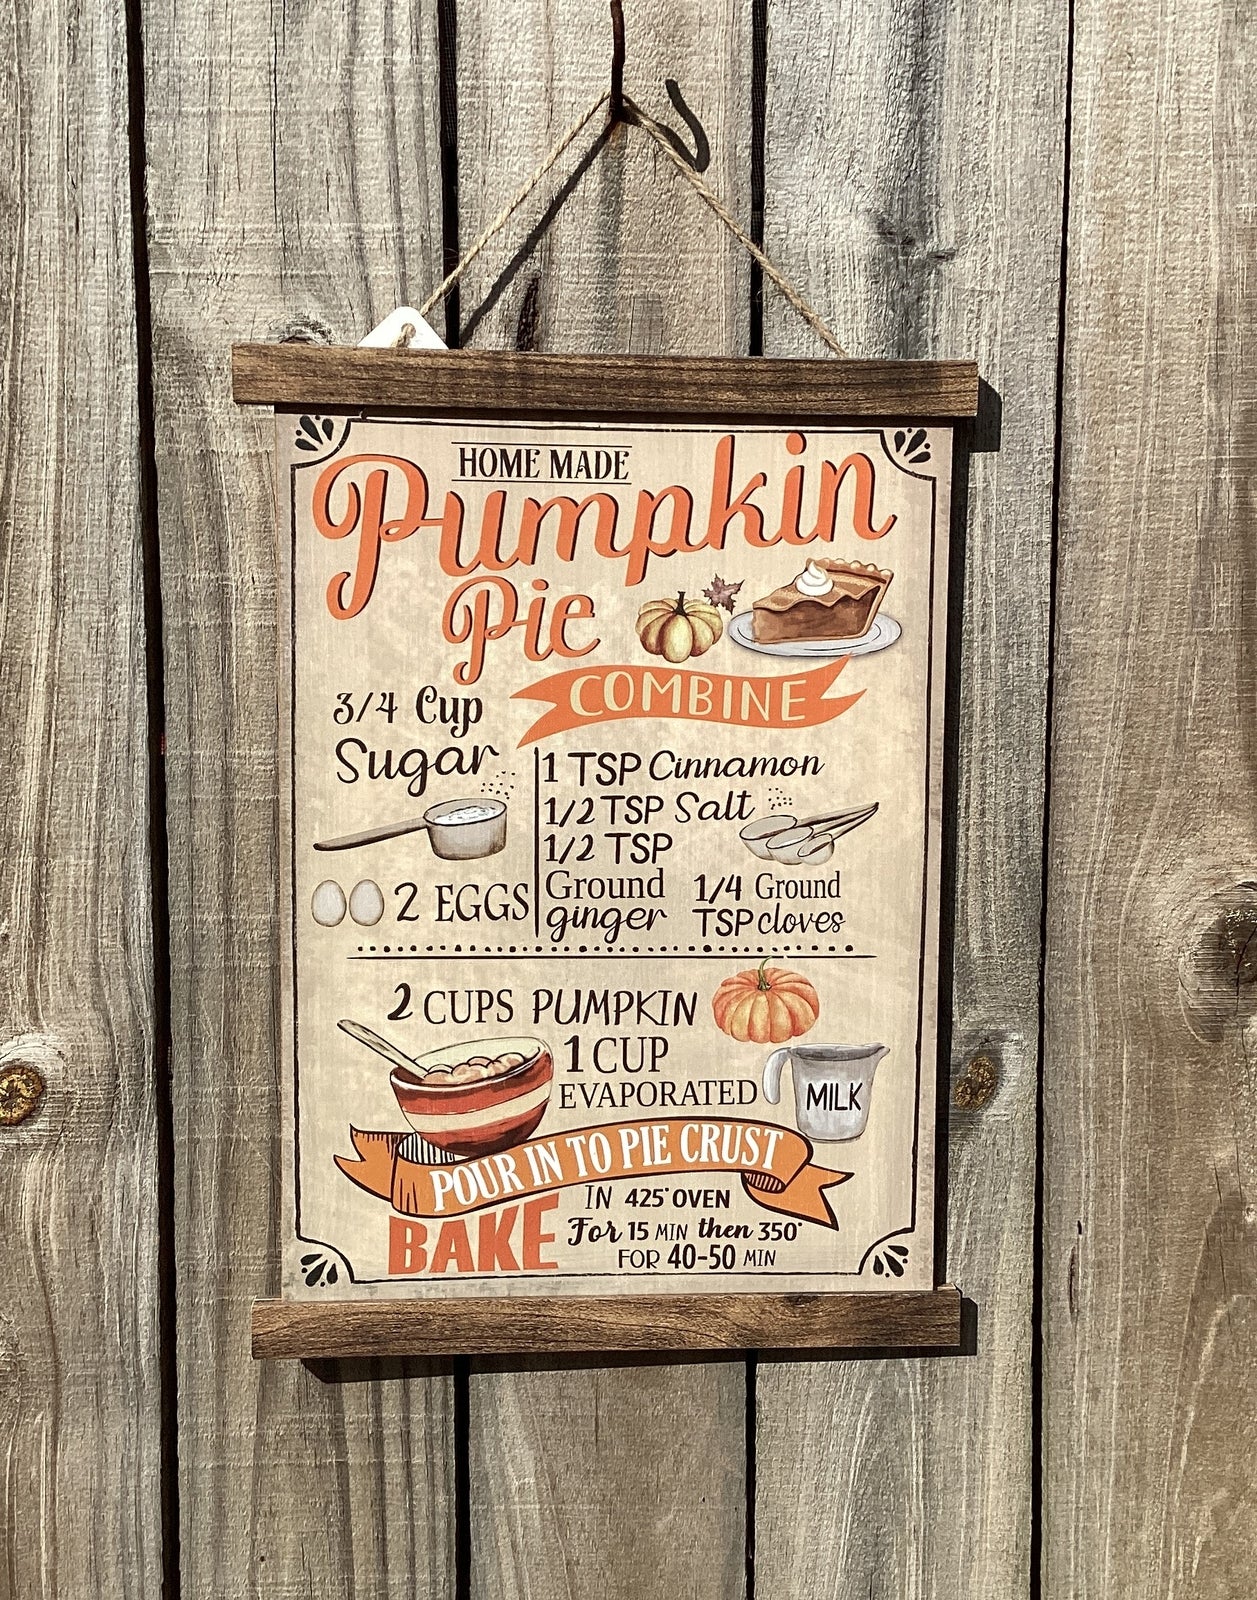 HOME MADE
Pumpkin
Pie
COMBINE
3/4 Cup
Sugar
2 EGGS
1 TSP Cinnamon
1/2 TSP Salt
1/2 TSP
Ground
ginger
1/4 Ground
TSP cloves
2 CUPS PUMPKIN
1 CUP
EVAPORATED
MILK
POUR IN TO PIE CRUST
BAKE
IN 425° OVEN
For 15 MIN then 350°
FOR 40-50 MIN